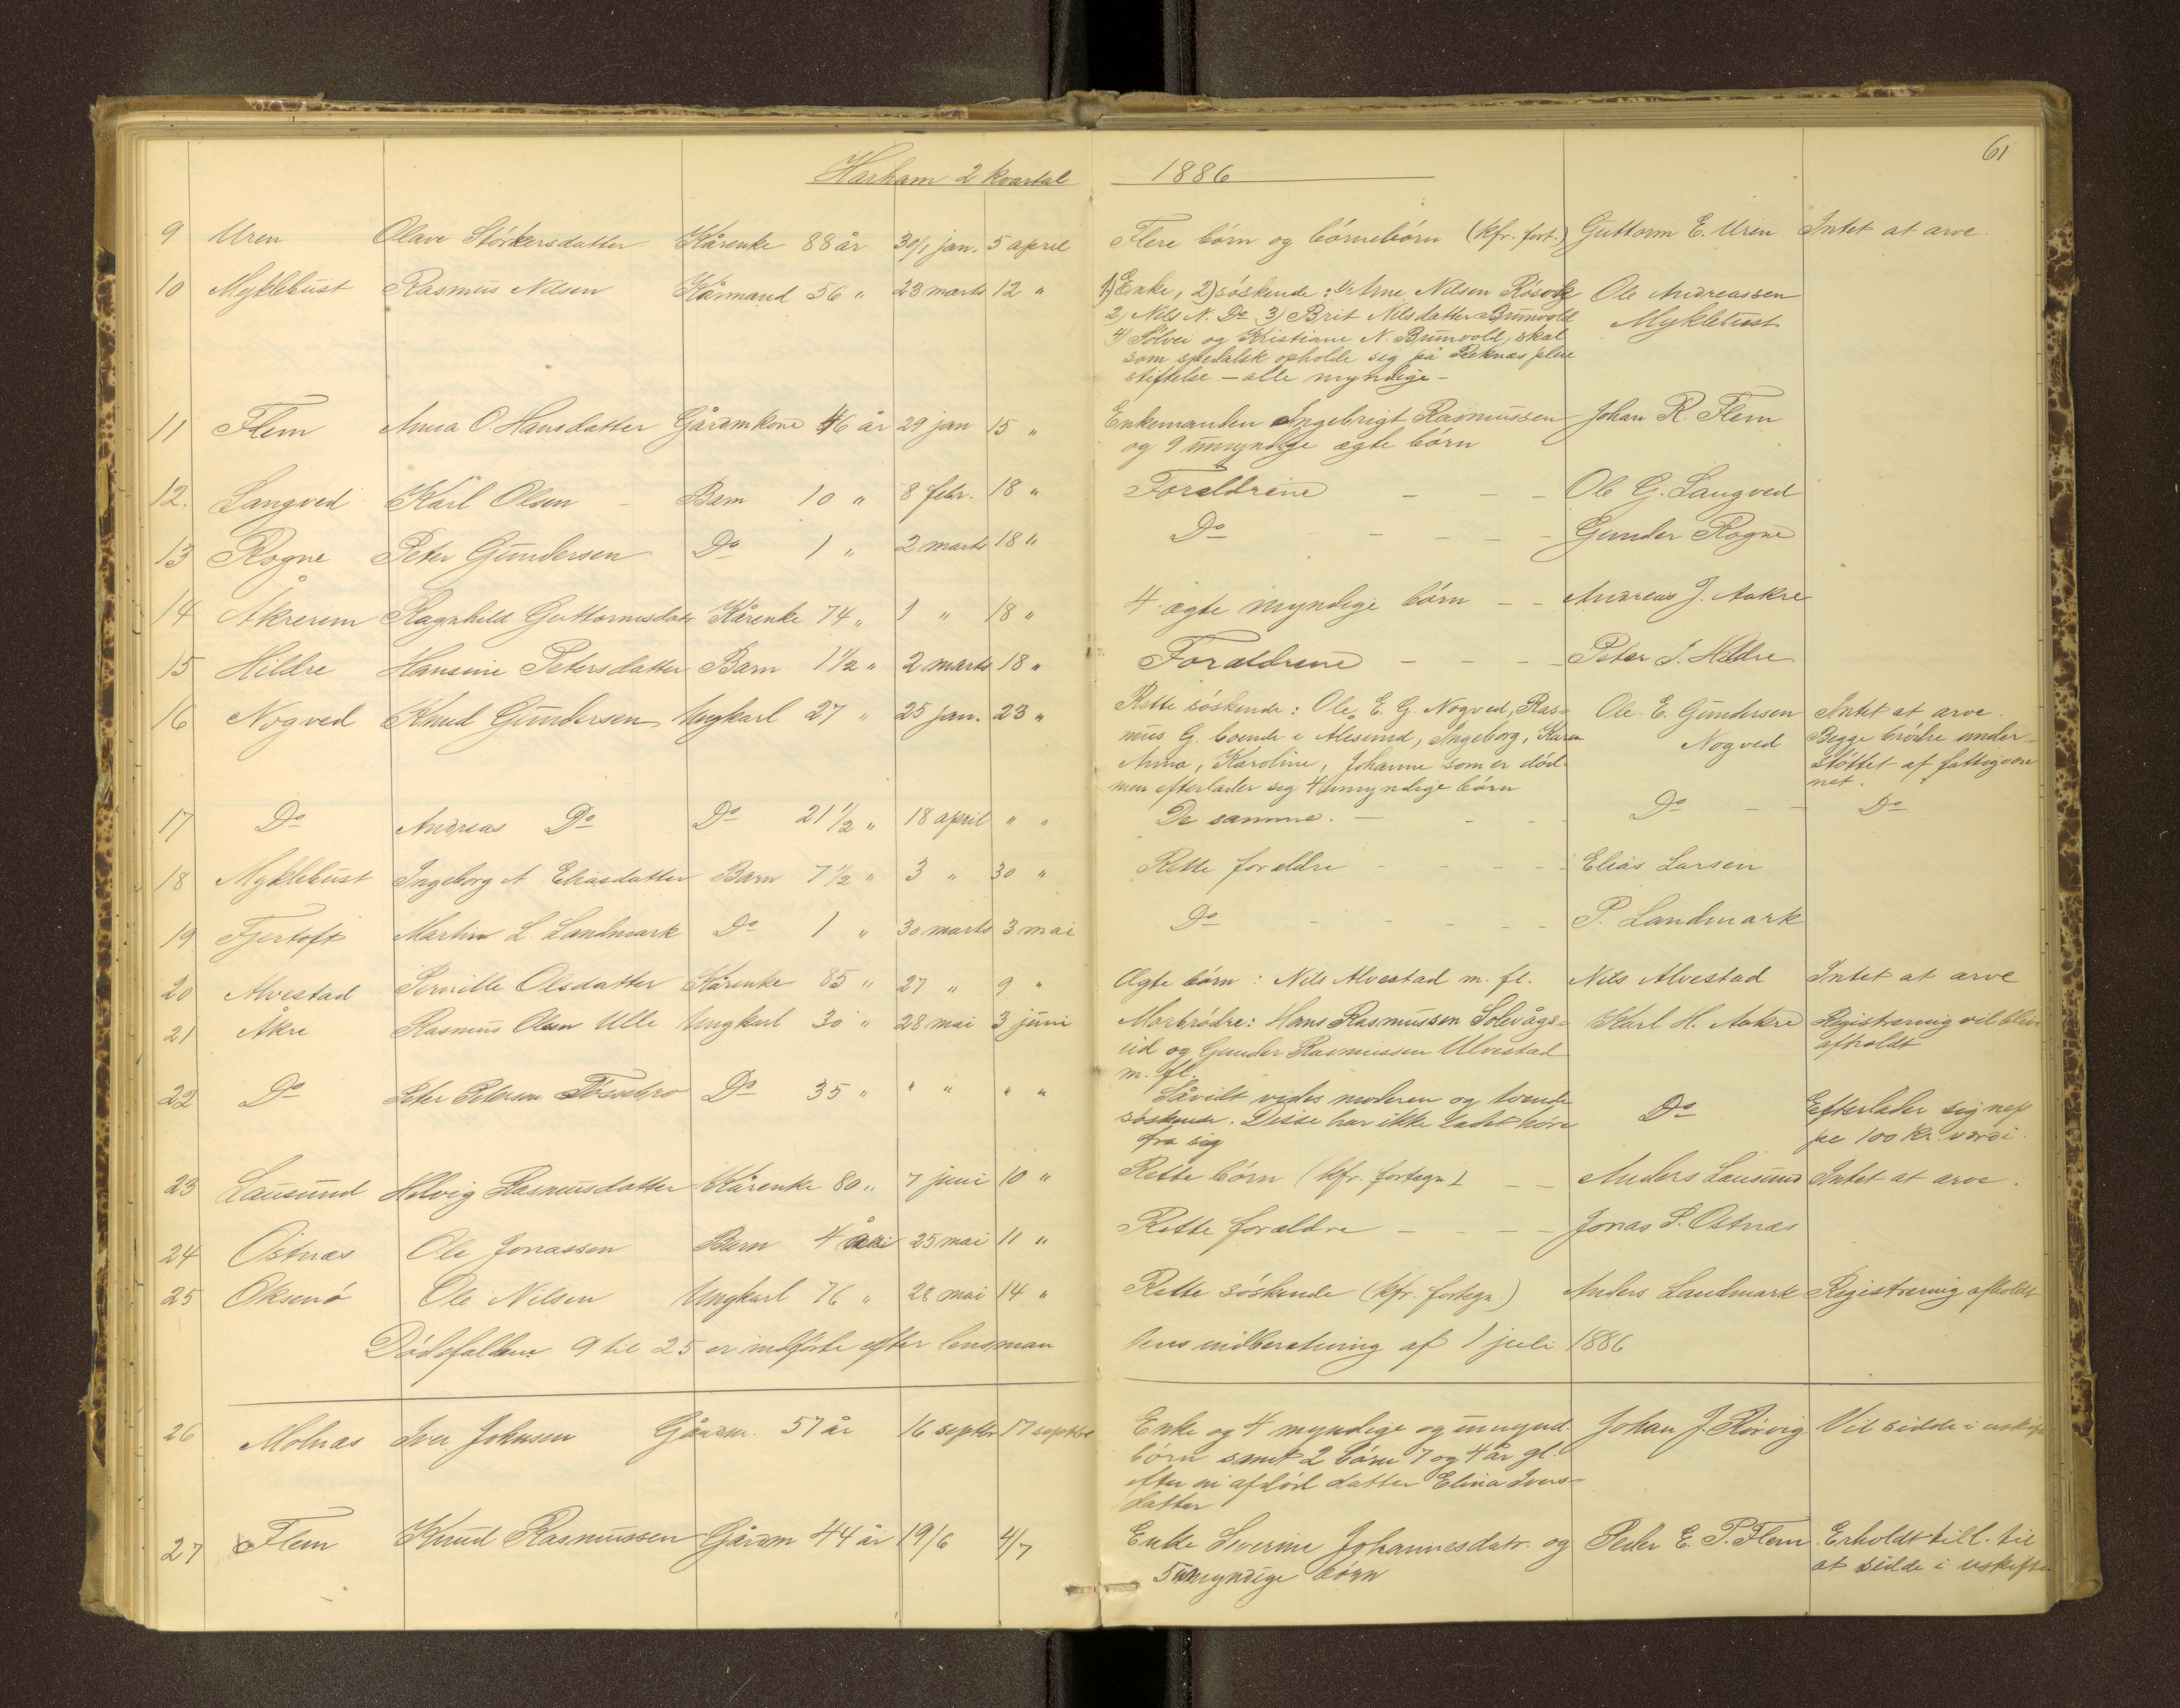 61
Harham 2 kvartal 1886
9 Uren Olave Störkersdatter Kårenke 88 år 30/1 jan. 5 april Flere börn og börnebörn (kfr. fort.) Guttorm E. Uren Intet at arve.
10 Myklebust Rasmus Nilsen Kårmand 56 " 23 marts 12 " 1) Enke, 2) söskende: Arne Nilsen Rösok Ole Andreassen
2) Nils N. Do 3) Brit Nilsdatter Brunvold Myklebust
4) Sölvei og Kristiane N. Brunvold, skal
som spedalsk opholde sig på Reknæs pleie
stiftelse – alle myndige –
11 Flem Anna O. Hansdatter Gårdmkone 46 år 29 jan 15 " Enkemanden Ingebrigt Rasmussen Johan R. Flem
og 9 umyndige ægte börn
12. Langved Karl Olsen Barn 10 " 8 febr. 18 " Forældrene Ole G. Langved
13 Rogne Peter Gundersen Do 1 " 2 marts 18 " Do Gunder Rogne
14 Åkrerem Ragnhild Guttormsdatr Kårenke 74 " 1 " 18 " 4 ægte myndige börn Andreas J. Aakre
15 Hildre Hansine Petersdatter Barn 1 1/2 " 2 marts 18 " Forældrene Peter J. Hildre
16 Nogved Knud Gundersen Ungkarl 27 " 25 jan. 23 " Rette söskende: Ole E. G. Nogved, Ras= Ole E. Gundersen Intet at arve.
mus G. boende i Ålesund, Ingeborg, Karen Nogved Begge brödre under=
Anna, Karoline, Johanne som er död støttet af fattigvæs
men efterlader sig 4 umyndige börn net.
17 Do Andreas Do Do 21 1/2 " 18 april " " De samme. Do Do
18 Myklebust Ingeborg A Eliasdatter Barn 7 1/2 " 3 " 30 " Rette forældre Elias Larsen
19 Fjertoft Martin L. Landmark Do 1 " 30 marts 3 mai Do P. Landmark
20 Alvestad Pernille Olsdatter Kårenke 85 " 27 " 9 " Ægte börn: Nils Alvestad m. fl. Nils Alvestad Intet at arve
21 Åkre Rasmus Olsen Ulle Ungkarl 30 " 28 mai 3 juni Morbrödre: Hans Rasmussen Solevågs= Karl H. Aakre Registrering vil blive
eid og Gunder Rasmussen Ulvestad afholdt
m. fl.
22 Do Peter Petersen Fossebro Do 35 " " " " " Såvidt vides moderen og tvende Do Efterlader sig nep
söskende. Disse har ikke ladet höre pe 100 Kr. værdi.
fra sig
23 Lausund Helvig Rasmusdatter Kårenke 80 " 7 juni 10 " Rette börn (kfr. fortegn) Anders Lausund Intet at arve.
24 Östnæs Ole Jonassen Barn 4 25 mai 11 " Rette forældre Jonas P. Östnæs
25 Oksenö Ole Nilsen Ungkarl 76 " 28 mai 14 " Rette söskende (kfr. fortegn.) Anders Landmark Registrering afholdt
Dödsfaldene 9 til 25 er indförte efter lensman dens indberetning af 1 juli 1886
26 Molnæs Iver Johnsen Gårdm. 57 år 16 septbr 17 septbr Enke og 4 myndige og umynd. Johan J. Rörvig Vil sidde i uskifte
börn samt 2 börn 7 og 4 år gl.
efter en afdöd datter Elina Ivers=
datter
27 Flem Knud Rasmussen Gårdm 44 år 19/6 4/7 Enke Severine Johannesdatr. og Peder E. P. Flem Erholdt till. til
5 umyndige börn at sidde i uskifte